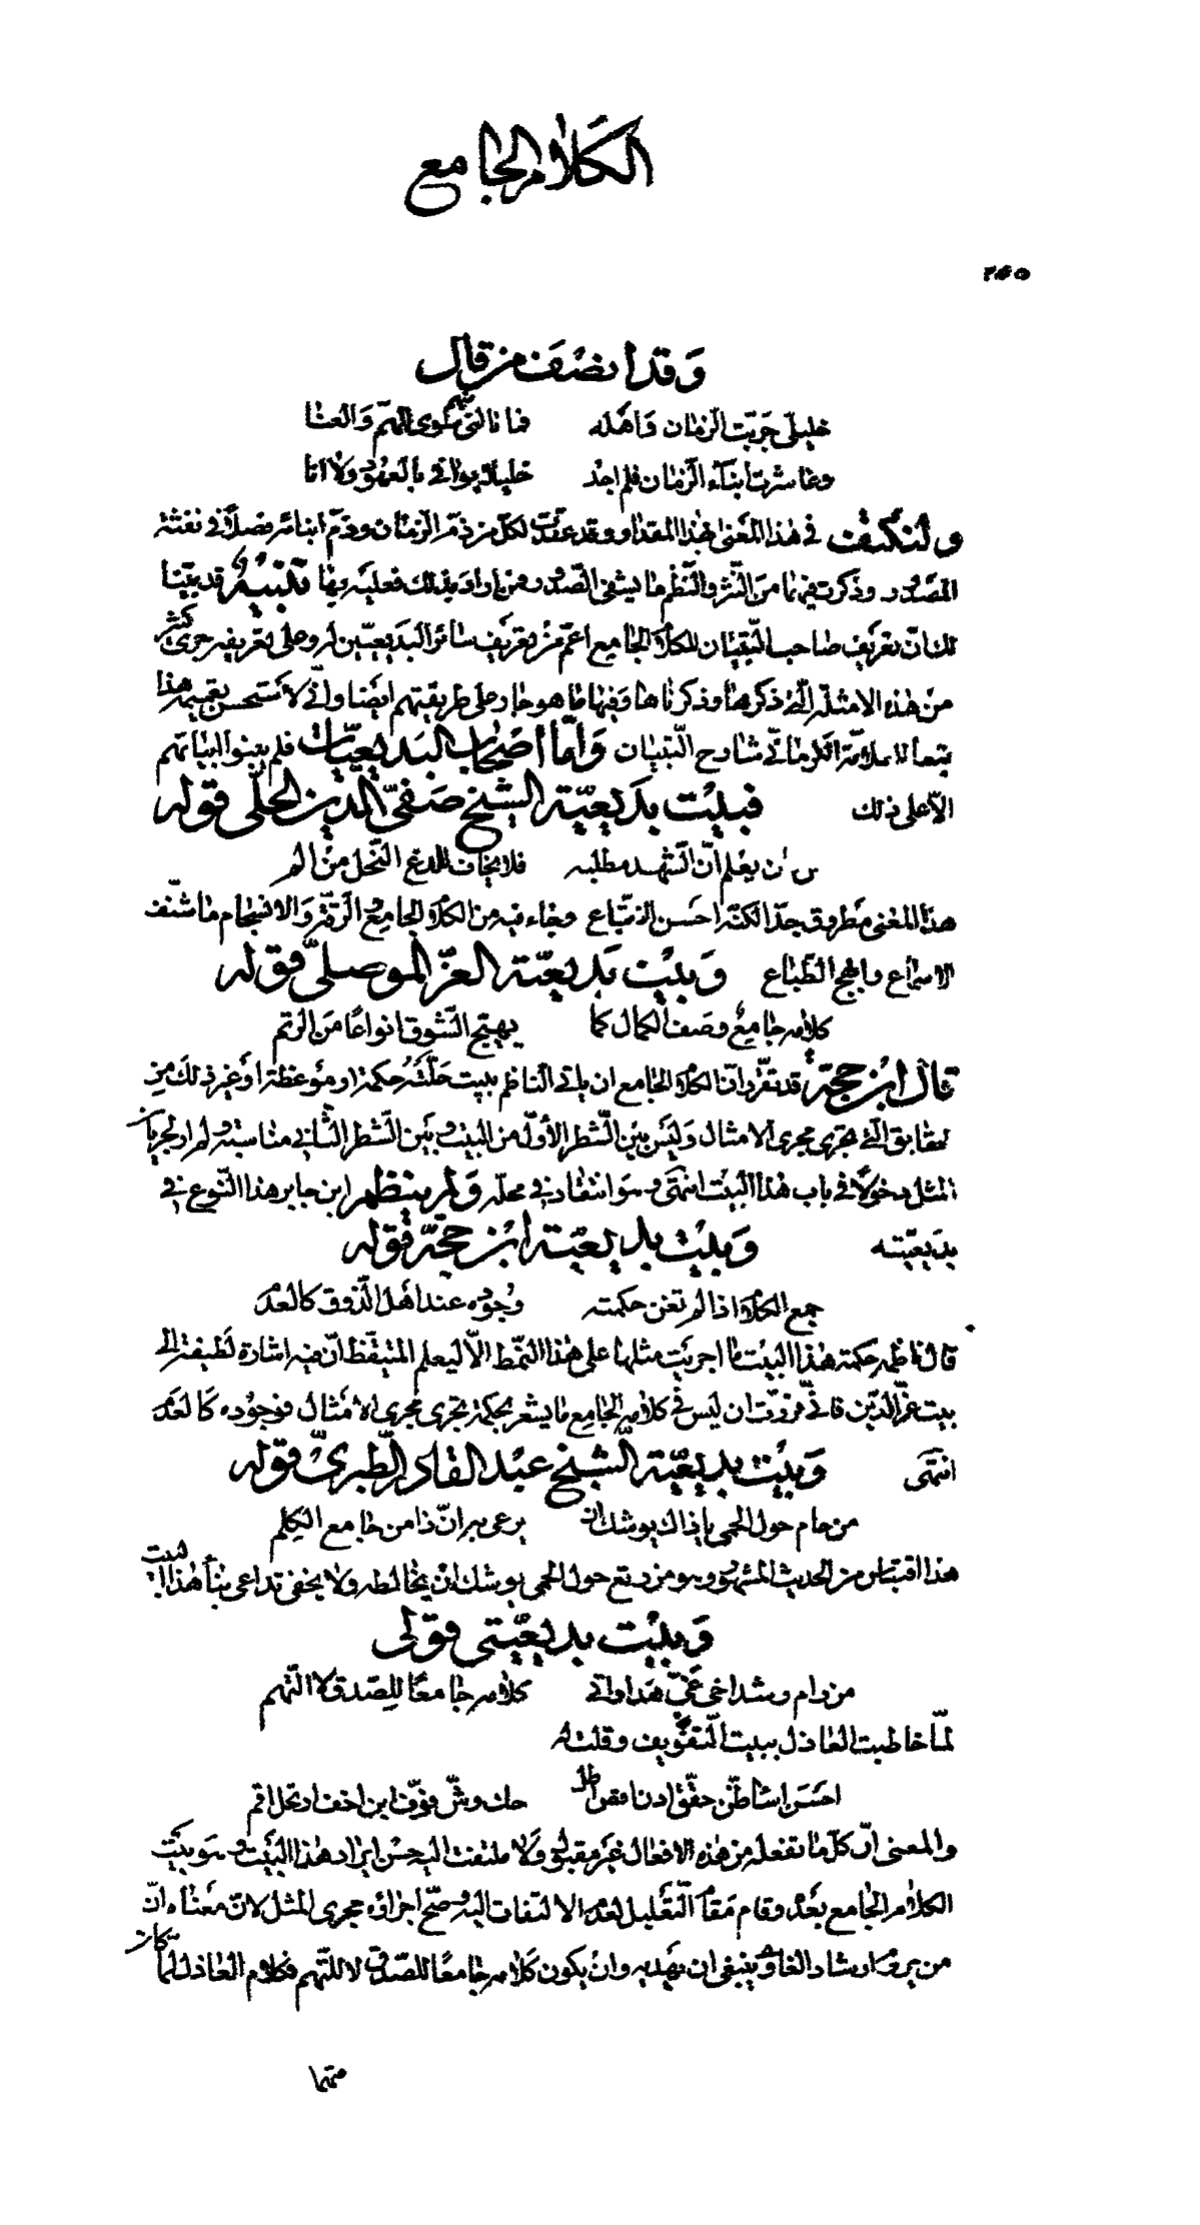 الكلام الجامع
٢٤٥
وقد انصف من قال
خليلي جربت الزمان واهله فما نالني منهم سوى الهم والعنا
وعاشرت ابناء الزمان فلم اجد خليلا يوافي بالعهود ولا انا
ولنكتف في هذا المعنى بهذا المقدار وقد عقدت لكل من ذم الزمان وذم ابنائه فصلا في نفثة
المصدور وذكرت فيهما من النثر والنظم ما يشفي الصدور فمن اراد ذلك فعليه بها تنبيه قد بينا
لك ان تعريف صاحب التبيان للكلام الجامع اعم من تعريف سائر البديعيين له وعلى تعريفه جرى كثير
من هذه الامثلة التي ذكرها وذكرناها وفيها ما هو جار على طريقتهم ايضا واني لا استحسن تقييد هذا
تبعا للعلامة الكرماني شارح التبيان واما اصحاب البديعيات فلم يبنوا ابياتهم
الا على ذلك فبيت بديعية الشيخ صفي الدين الحلي قوله
من كان يعلم ان الشهد مطلبه فلا يخاف للدغ النحل من الم
هذا المعنى مطروق جدا لكنه احسن الاتباع وجاء فيه من الكلام الجامع والرقة والانسجام ما شنف
الاسماع وابهج الطباع وبيت بديعية العز الموصلي قوله
كلامه جامع وصف الكمال كما يهيج الشوق انواعا من الرتم
قال ابن حجة قد تقرر ان الكلام الجامع ان ياتي الناظم ببيت جملته حكمة او موعظة او غير ذلك من
الحقايق التي تجري مجرى الامثال وليس بين الشطر الاول من البيت وبين الشطر الثاني مناسبة ولم ار لجريان
المثل دخولا في باب هذا البيت انتهى وهو انتقاد في محله ولم ينظم ابن جابر هذا النوع في
بديعيته وبيت بديعية ابن حجة قوله
جمع الكلام اذا لم تغن حكمته وجوده عند اهل الذوق كالعدم
قال ناظمه حكمة هذا البيت ما اجريت مثلها على هذا النمط الا ليعلم المتيقظ ان فيه اشارة لطيفة الى
بيت عز الدين فاني قررت ان ليس في كلامه الجامع ما يشعر بحكمة تجري مجرى الامثال فوجوده كالعدم
انتهى وبيت بديعية الشيخ عبد القادر الطبري قوله
من حام حول الحمى يا ذاك يوشك ان يرعى به ان ذا من جامع الكلم
هذا اقتباس من الحديث المشهور وهو من رتع حول الحمى يوشك ان يخالطه ولا يخفى تداعي بناء هذا البيت
وبيت بديعيتي فقولي
من رام رشد اخي غي هدى واتى كلامه جامعا للصدق لا التهم
لما خاطبت العاذل ببيت التفويف وقلت له
احسن اسأ ظن حقق ادن اقص اطل حك وش فوف ابن اخف ارتحل اقم
والمعنى ان كل ما تفعله من هذه الافعال غير مقبول ولا ملتفت اليه حسن ايراد هذا البيت وهو بيت
الكلام الجامع بعده وقام مقام التعليل لعدم الالتفات اليه وصح اجراؤه مجرى المثل لان معناه ان
من يروم ارشاد الغاوي ينبغي ان يهديه وان يكون كلامه جامعا للصدق لا للتهم فكلام العاذل لما كان
متهما